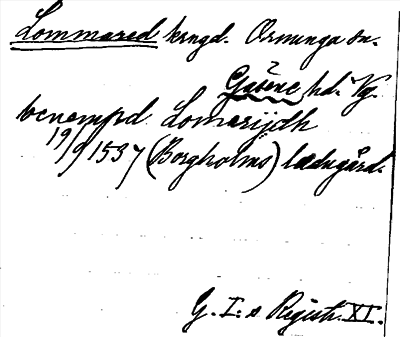 Lommared krngd. Ornunga sn.
Gäsene hd. Vg.
benempd Lomarijdh
19/9 1537 (Borgholms) ladugård.
G. I:s Registr. XI.